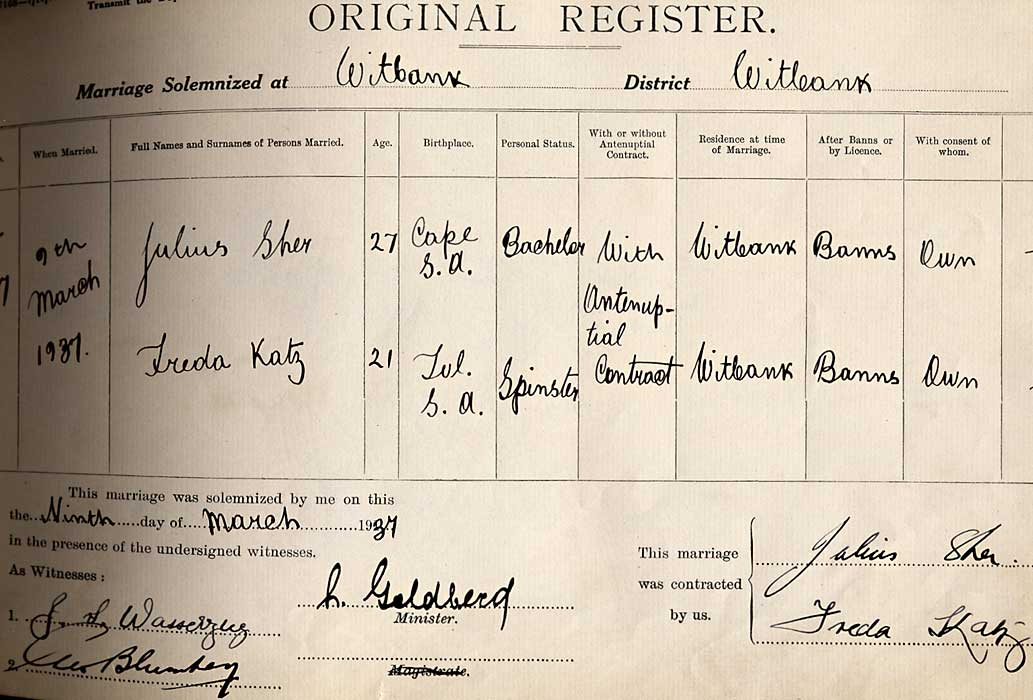 Transmit the
ORIGINAL REGISTER.
Marriage Solemnized at Witbank District Witbank
When Married. Full Names and Surnames of Persons Married. Age. Birthplace. Personal Status. With or without Antenuptial Contract. Residence at time of Marriage. After Banns or by Licence. With consent of whom.
9th March 1937. Julius Sher 27 Cape S.A. Bachelor With Antenup-tial Contract Witbank Banns Own
Freda Katz 21 Tvl. S.A. Spinster Witbank Banns Own
This marriage was solemnized by me on this
the Ninth day of March 1937
in the presence of the undersigned witnesses.
As Witnesses:
1. Wasserzug
2. Blumberg
Goldberg
Minister.
Magistrate.
This marriage was contracted by us.
Julius Sher.
Freda Katz